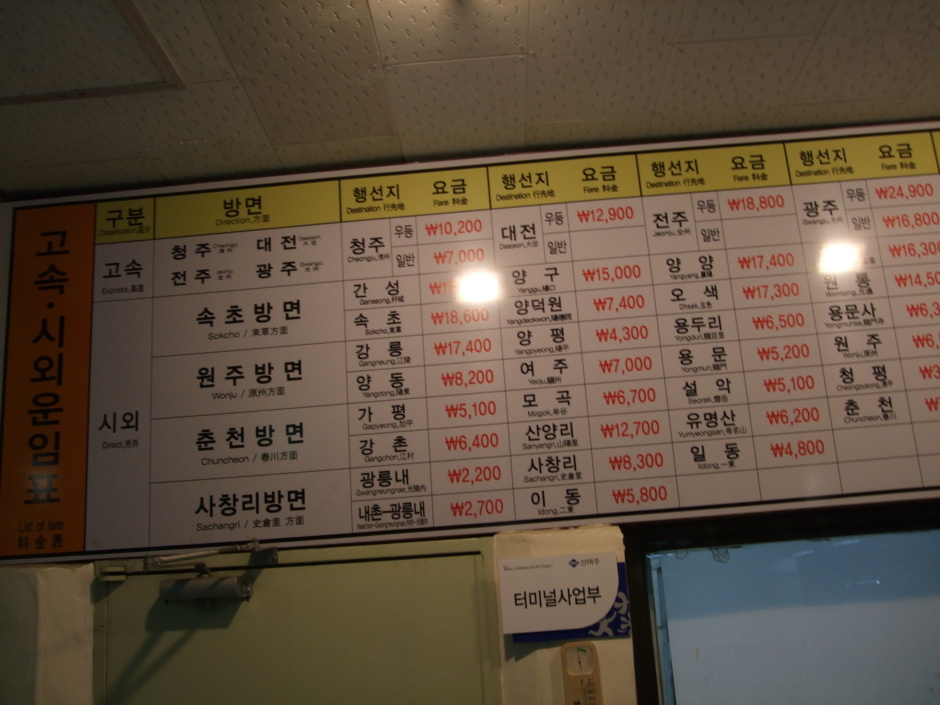 고속·시외운임표
List of fare
料金表
구분 방면 행선지 요금 행선지 요금 행선지 요금 행선지 요금
Direction,方面 Destination 行先地 Fare 料金 Destination 行先地 Fare 料金 Destination 行先地 Fare 料金 Destination 行先地 Fare 料金
고속
Express,高速
청주 대전
전주 광주
청주 우등 ₩10,200 대전 우등 ₩12,900 전주 우등 ₩18,800 광주 우등 ₩24,900
일반 ₩7,000 일반 일반 일반 ₩16,800
시외
Direct,市外
속초방면
Sokcho / 束草方面
원주방면
Wonju / 原州方面
춘천방면
Chuncheon / 春川方面
사창리방면
Sachangri / 史倉里 方面
간성 양구 ₩15,000 양양 ₩17,400
Ganseong,杆城 Yangyang,襄陽
속초 ₩18,600 양덕원 ₩7,400 오색 ₩17,300
Sokcho,束草 Osaek,五色
강릉 ₩17,400 양평 ₩4,300 용두리 ₩6,500 용문사
Gangneung,江陵 Yangpyeong,楊平
양동 ₩8,200 여주 ₩7,000 용문 ₩5,200 원주
Yangdong,楊東 Yeoju,驪州 Yongmun,龍門 Wonju,原州
가평 ₩5,100 모곡 ₩6,700 설악 ₩5,100 청평
Gapyeong,加平 Mogok,牟谷 Seorak,雪岳 Cheongpyeong,淸平
강촌 ₩6,400 산양리 ₩12,700 유명산 ₩6,200 춘천
Gangchon,江村 Sanyangri,山陽里 Yumyeongsan,有名山 Chuncheon,春川
광릉내 ₩2,200 사창리 ₩8,300 일동 ₩4,800
Gwangneungnae,光陵內 Sachangri,史倉里 Ildong,一東
내촌-광릉내 ₩2,700 이동 ₩5,800
Idong,二東
터미널사업부